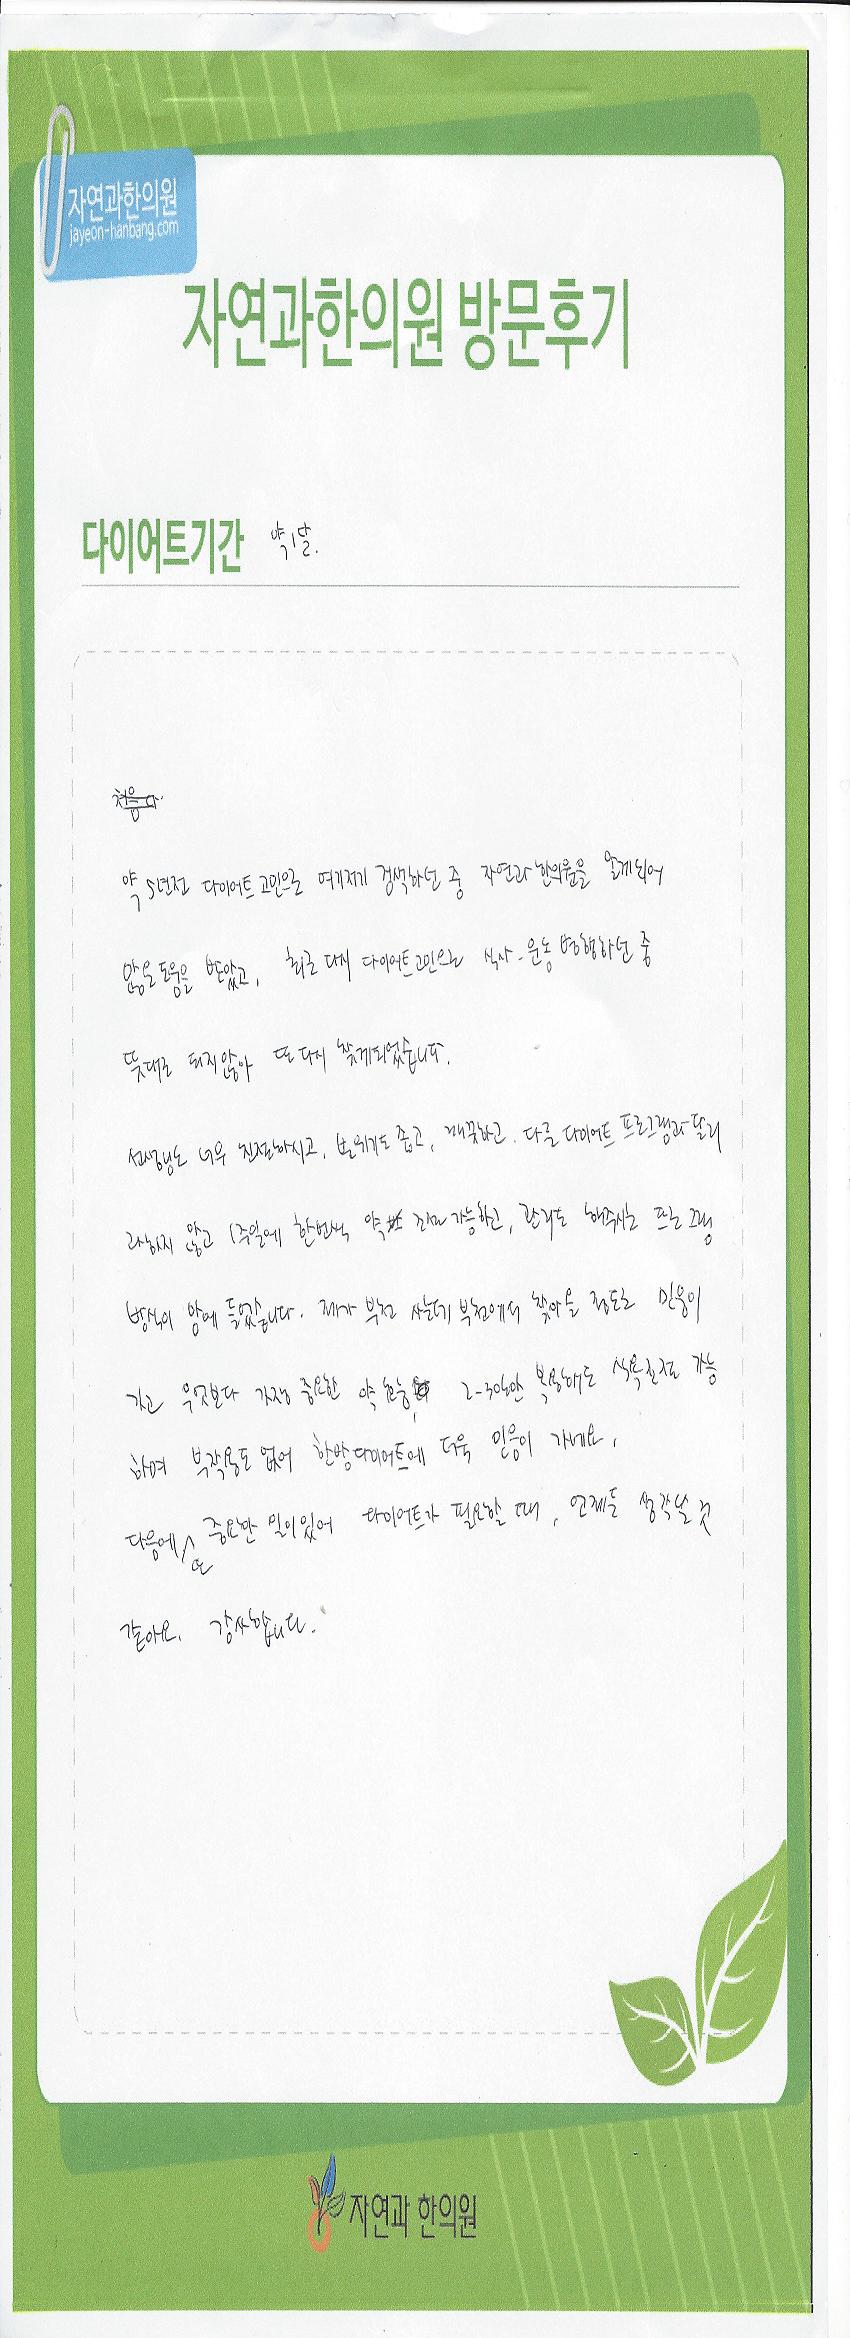 자연과한의원
jayeon-hanbang.com
자연과한의원 방문후기
다이어트기간 약 1달.
약 5년전 다이어트 고민으로 여기저기 검색하던 중 자연과한의원을 알게되어
많은 도움을 받았고, 최근 다시 다이어트고민으로 식사-운동 병행하던 중
뜻대로 되지않아 또 다시 찾게되었습니다.
선생님도 너무 친절하시고, 분위기도 좋고, 깨끗하고, 다른 다이어트 프로그램과 달리
과하지 않고 1주일에 한번씩 약 가능하고, 관리도 해주시는 프로그램
방식이 맘에 들었습니다. 제가 부천 사는데 부천에서 찾아올 정도로 믿음이
가고 무엇보다 가장 중요한 약 효능 2-3일만 복용해도 식욕절제 가능
하며 부작용도 없어 한방다이어트에 더욱 믿음이 가네요.
다음에 또 중요한 일이있어 다이어트가 필요할 때, 언제든 생각날 것
같아요. 감사합니다.
자연과 한의원